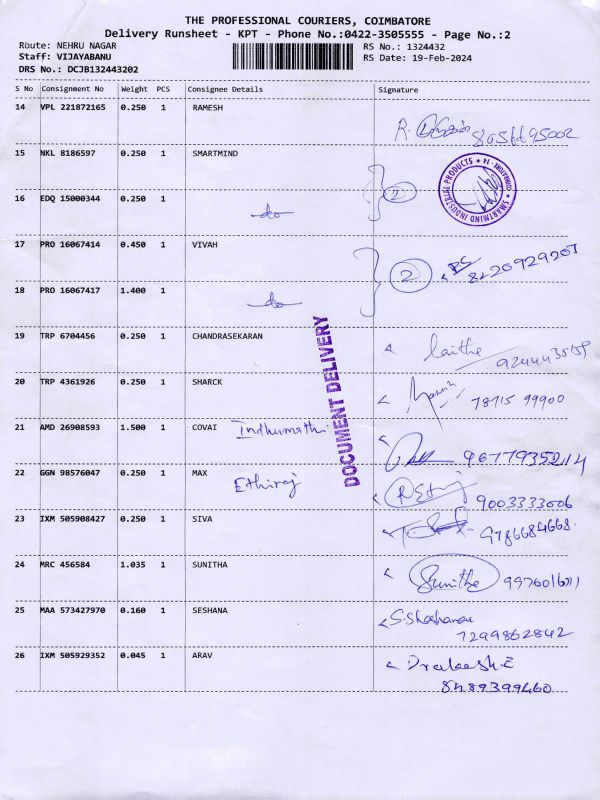 THE PROFESSIONAL COURIERS, COIMBATORE
Delivery Runsheet - KPT - Phone No.:0422-3505555 - Page No.:2
Route: NEHRU NAGAR
Staff: VIJAYABANU
DRS No.: DCJB132443202
RS No.: 1324432
RS Date: 19-Feb-2024
S No Consignment No Weight PCS Consignee Details Signature
14 VPL 221872165 0.250 1 RAMESH
R.
15 NKL 8186597 0.250 1 SMARTMIND
SMARTMIND INDUSTRIAL PRODUCTS
16 EDQ 15000344 0.250 1
do 2
17 PRO 16067414 0.450 1 VIVAH
2 8220929207
18 PRO 16067417 1.400 1
do
19 TRP 6704456 0.250 1 CHANDRASEKARAN
DOCUMENT DELIVERY
20 TRP 4361926 0.250 1 SHARCK
78715 99900
21 AMD 26908593 1.500 1 COVAI Indhumathi
9677935214
22 GGN 98576047 0.250 1 MAX
Ethiraj
9003333006
23 IXM 505908427 0.250 1 SIVA
9786684668.
24 MRC 456584 1.035 1 SUNITHA
Sunitha
25 MAA 573427970 0.160 1 SESHANA
7299862842
26 IXM 505929352 0.045 1 ARAV
8489399460